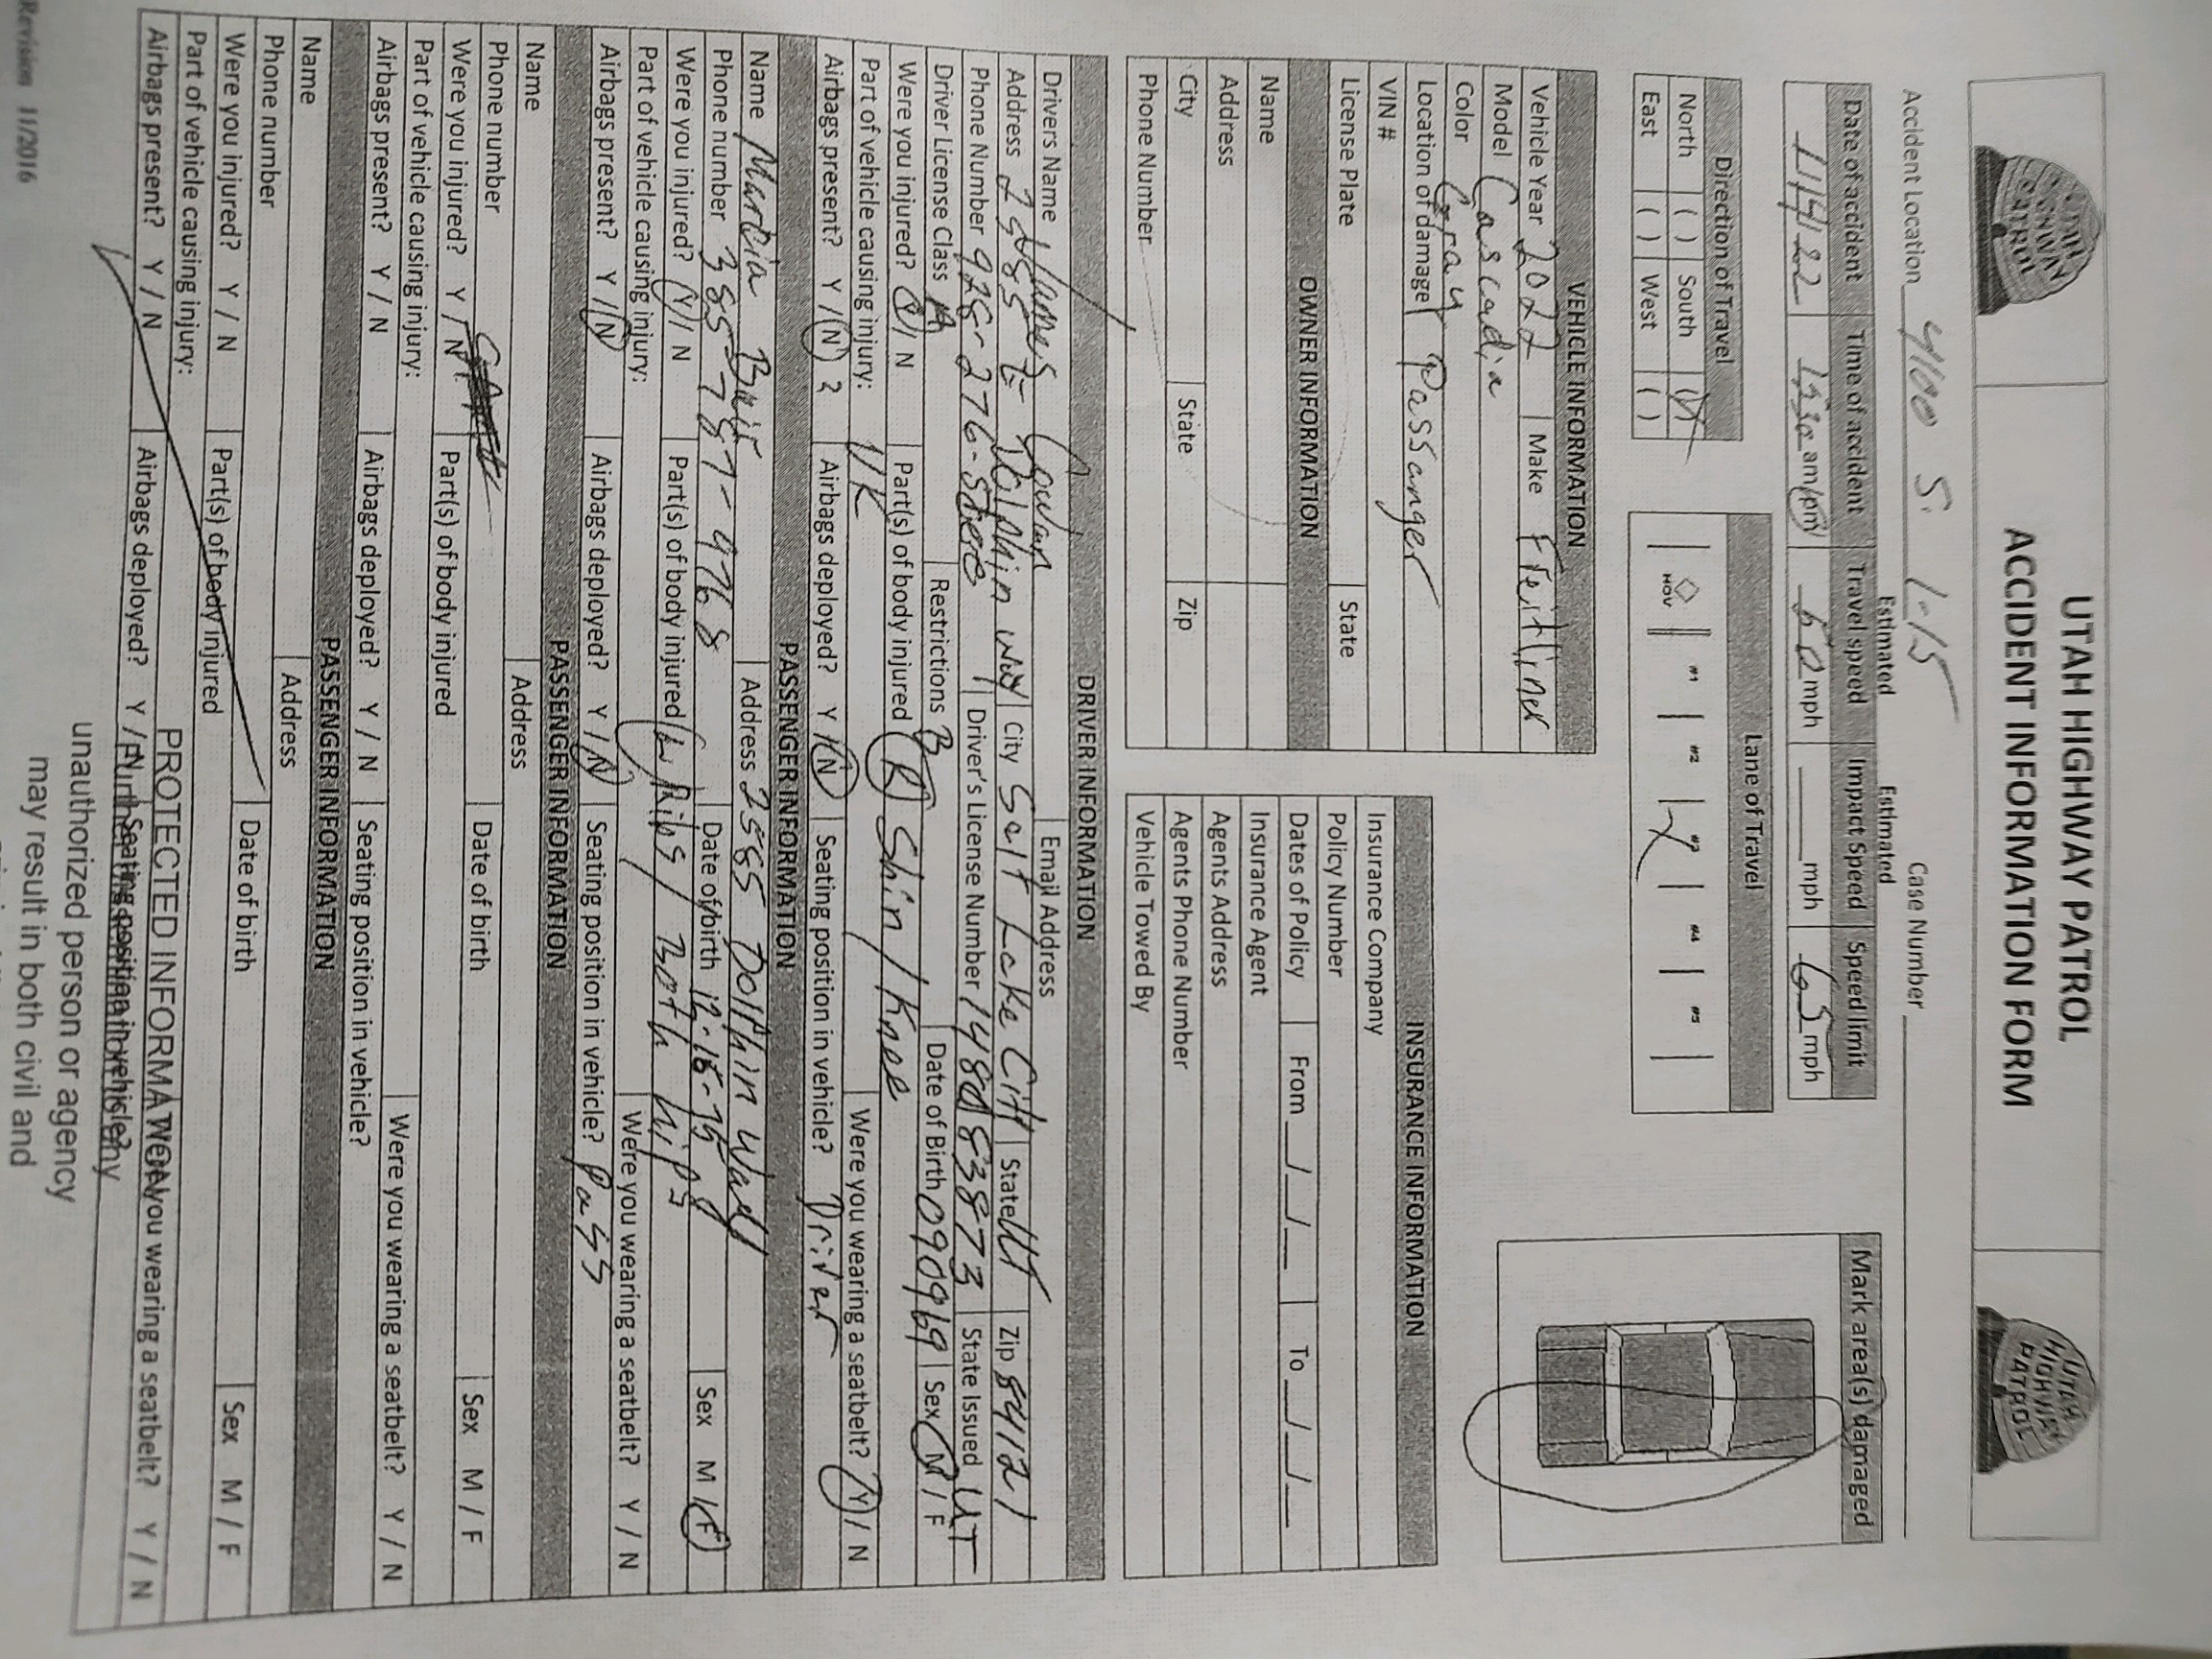 UTAH HIGHWAY PATROL
ACCIDENT INFORMATION FORM
UTAH HIGHWAY PATROL
UTAH HIGHWAY PATROL
Accident Location 4100 S. I-15 Case Number
Date of accident Time of accident Estimated Travel speed Estimated Impact Speed Speed limit
am/pm 60 mph mph 65 mph
Mark area(s) damaged
Direction of Travel
North ( ) South (X)
East ( ) West ( )
Lane of Travel
HOV #1 #2 #3 #4 #5
VEHICLE INFORMATION
Vehicle Year 2022 Make Freitliner
Model Cascadia
Color Gray
Location of damage Passanger
VIN #
License Plate State
OWNER INFORMATION
Name
Address
City State Zip
Phone Number
INSURANCE INFORMATION
Insurance Company
Policy Number
Dates of Policy From __/__/__ To __/__/__
Insurance Agent
Agents Address
Agents Phone Number
Vehicle Towed By
DRIVER INFORMATION
Drivers Name James Cowan Email Address
Address Dolphin way City Salt Lake City State UT Zip 84121
Phone Number Driver's License Number State Issued UT
Driver License Class A Restrictions B Date of Birth 090969 Sex M / F
Were you injured? Y / N Part(s) of body injured (R) Shin / Knee
Part of vehicle causing injury: UK Were you wearing a seatbelt? Y / N
Airbags present? Y / N ? Airbags deployed? Y / N Seating position in vehicle? Driver
PASSENGER INFORMATION
Name Marcia Address Dolphin Way
Phone number 385-787-9768 Date of birth Sex M / F
Were you injured? Y / N Part(s) of body injured Ribs / Both hips
Part of vehicle causing injury: Were you wearing a seatbelt? Y / N
Airbags present? Y / N Airbags deployed? Y / N Seating position in vehicle? Pass
PASSENGER INFORMATION
Name Address
Phone number Date of birth Sex M / F
Were you injured? Y / N Part(s) of body injured
Part of vehicle causing injury: Were you wearing a seatbelt? Y / N
Airbags present? Y / N Airbags deployed? Y / N Seating position in vehicle?
PASSENGER INFORMATION
Name Address
Phone number Date of birth Sex M / F
Were you injured? Y / N Part(s) of body injured
Part of vehicle causing injury: Were you wearing a seatbelt? Y / N
Airbags present? Y / N Airbags deployed? Y / N Seating position in vehicle?
PROTECTED INFORMATION
unauthorized person or agency
may result in both civil and
Revision 11/2016